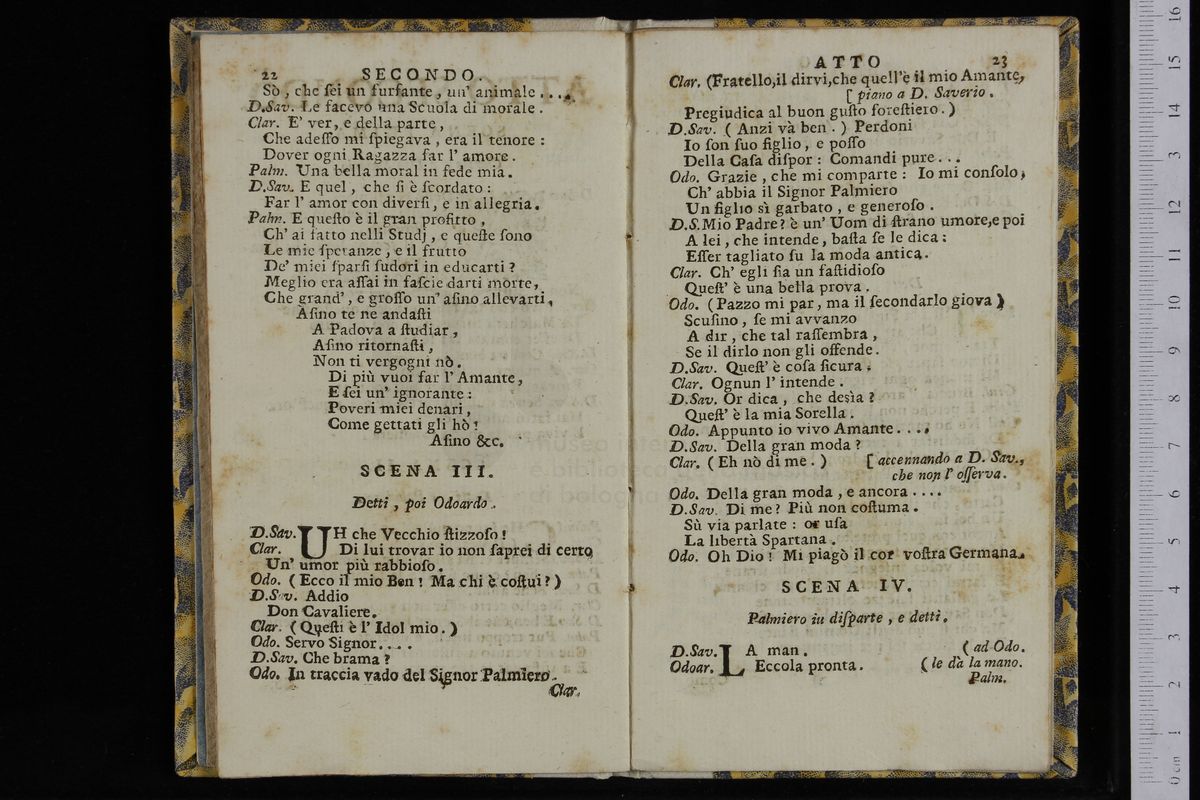 22 SECONDO.
Sò, che ſei un furfante, un' animale ....
D.Sav. Le facevo una Scuola di morale.
Clar. E' ver, e della parte,
Che adeſſo mi ſpiegava, era il tenore:
Dover ogni Ragazza far l' amore.
Palm. Una bella moral in fede mia.
D.Sav. E quel, che ſi è ſcordato:
Far l' amor con diverſi, e in allegria.
Palm. E queſto è il gran profitto,
Ch' ai fatto nelli Studj, e queſte ſono
Le mie ſperanze, e il frutto
De' miei ſparſi ſudori in educarti?
Meglio era aſſai in faſcie darti morte,
Che grand', e groſſo un' aſino allevarti,
Aſino te ne andaſti
A Padova a ſtudiar,
Aſino ritornaſti,
Non ti vergogni nò.
Di più vuoi far l' Amante,
E ſei un' ignorante:
Poveri miei denari,
Come gettati gli hò!
Aſino &c.
SCENA III.
Detti, poi Odoardo.
D.Sav. UH che Vecchio ſtizzoſo!
Clar. Di lui trovar io non ſaprei di certo
Un' umor più rabbioſo.
Odo. (Ecco il mio Ben! Ma chi è coſtui?)
D.Sav. Addio
Don Cavaliere.
Clar. (Queſti è l' Idol mio.)
Odo. Servo Signor....
D.Sav. Che brama?
Odo. In traccia vado del Signor Palmiero.
Clar.
ATTO 23
Clar. (Fratello, il dirvi, che quell'è il mio Amante,
[piano a D. Saverio.
Pregiudica al buon guſto foreſtiero.)
D.Sav. (Anzi và ben.) Perdoni
Io ſon ſuo figlio, e poſſo
Della Caſa diſpor: Comandi pure...
Odo. Grazie, che mi comparte: Io mi conſolo,
Ch' abbia il Signor Palmiero
Un figlio sì garbato, e generoſo.
D.S. Mio Padre? è un' Uom di ſtrano umore, e poi
A lei, che intende, baſta ſe le dica:
Eſſer tagliato ſu la moda antica.
Clar. Ch' egli ſia un faſtidioſo
Queſt' è una bella prova.
Odo. (Pazzo mi par, ma il ſecondarlo giova)
Scuſino, ſe mi avvanzo
A dir, che tal raſſembra,
Se il dirlo non gli offende.
D.Sav. Queſt' è coſa ſicura.
Clar. Ognun l' intende.
D.Sav. Or dica, che desìa?
Queſt' è la mia Sorella.
Odo. Appunto io vivo Amante....
D.Sav. Della gran moda?
Clar. (Eh nò di me.) [accennando a D. Sav.,
che non l' oſſerva.
Odo. Della gran moda, e ancora....
D.Sav. Di me? Più non coſtuma.
Sù via parlate: or uſa
La libertà Spartana.
Odo. Oh Dio! Mi piagò il cor voſtra Germana.
SCENA IV.
Palmiero in diſparte, e detti.
D.Sav. LA man. (ad Odo.
Odoar. Eccola pronta. (le dà la mano.
Palm.
0 cm 1 2 3 4 5 6 7 8 9 10 11 12 13 14 15 16